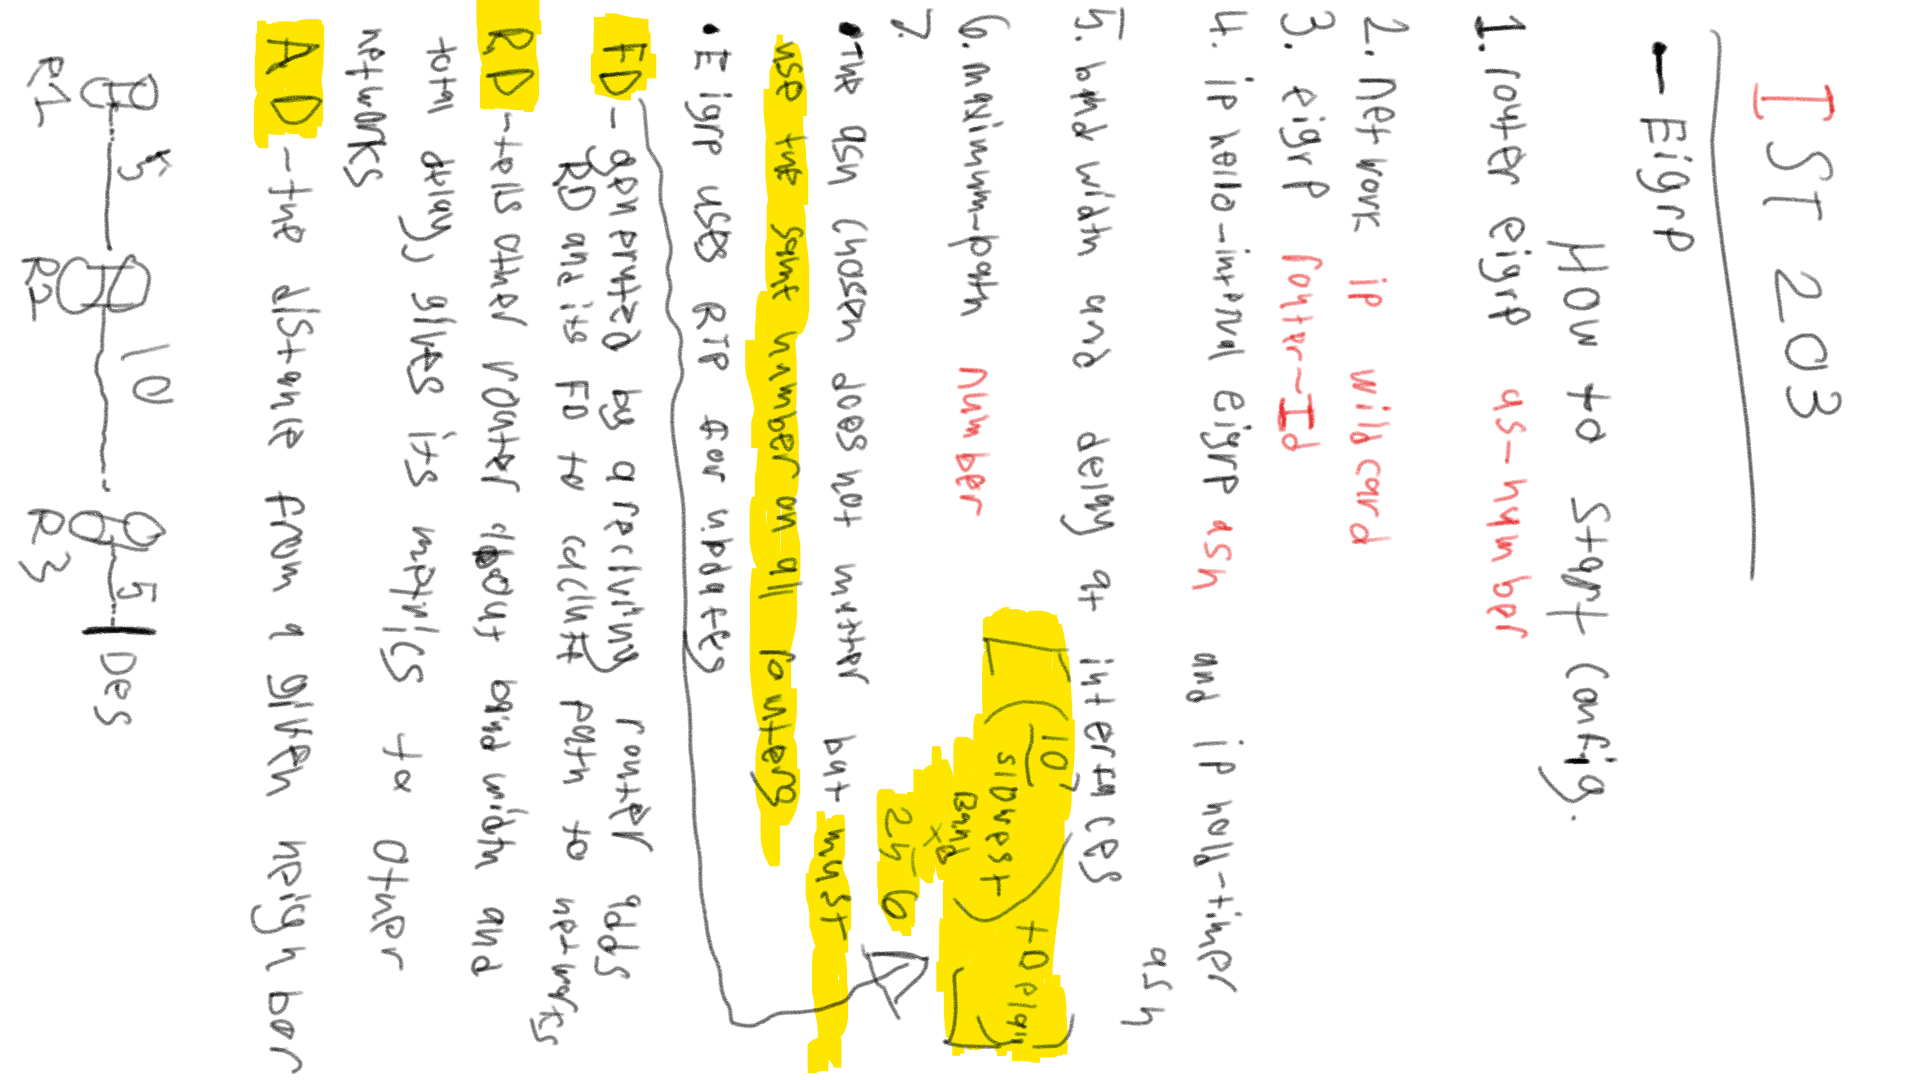 IST 203
• Eigrp
How to start config.
1. router eigrp as-number
2. network ip wildcard
3. eigrp router-Id
4. ip hello-interval eigrp asn and ip hold-timer
asn
5. band width and delay at interfaces
6. maximum-path number
[(10⁷/slowest Band) + Delay] × 256
7.
• The asn chosen does not matter but must
use the same number on all routers
• Eigrp uses RTP for updates
FD - generated by a recieving router adds
RD and its FD to calculate path to networks
RD - tells other router about band width and
total delay, gives its metrics to other
networks
AD - the distance from a given neighbor
5 10 5 Des
R1 R2 R3